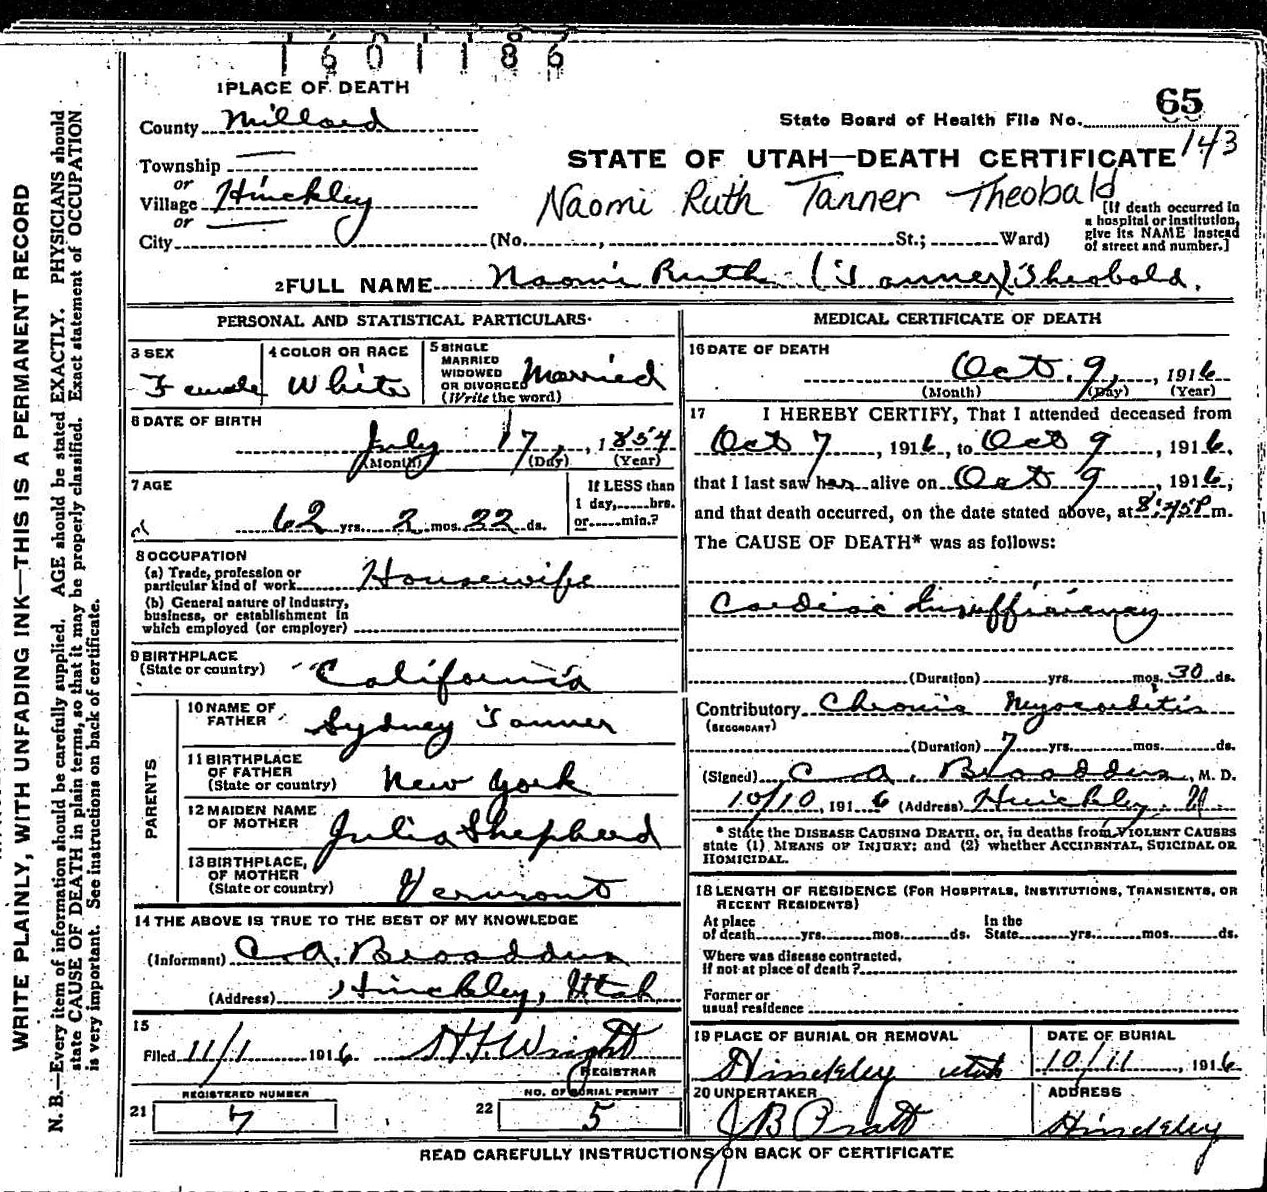 1601186
1 PLACE OF DEATH
65
State Board of Health File No.
143
County Millard
STATE OF UTAH—DEATH CERTIFICATE
Township —
or
Village Hinckley
Naomi Ruth Tanner Theobald
or
City —
(No. , St.; Ward)
[If death occurred in
a hospital or institution,
give its NAME instead
of street and number.]
2 FULL NAME Naomi Ruth (Tanner) Theobald.
PERSONAL AND STATISTICAL PARTICULARS
3 SEX
Female
4 COLOR OR RACE
White
5 SINGLE
MARRIED
WIDOWED
OR DIVORCED
(Write the word)
Married
6 DATE OF BIRTH
July 17, 1854
(Month) (Day) (Year)
7 AGE
62 yrs. 2 mos. 22 ds.
If LESS than
1 day, hrs.
or min.?
8 OCCUPATION
(a) Trade, profession or
particular kind of work Housewife
(b) General nature of Industry,
business, or establishment in
which employed (or employer)
9 BIRTHPLACE
(State or country) California
PARENTS
10 NAME OF
FATHER Sydney Tanner
11 BIRTHPLACE
OF FATHER
(State or country) New York
12 MAIDEN NAME
OF MOTHER Julia Shepherd
13 BIRTHPLACE,
OF MOTHER
(State or country) Vermont
14 THE ABOVE IS TRUE TO THE BEST OF MY KNOWLEDGE
(Informant) C. A. Broaddus
(Address) Hinckley, Utah
15
Filed 11/1 1916 Wright
REGISTRAR
REGISTERED NUMBER
21 7
NO. OF BURIAL PERMIT
22 5
MEDICAL CERTIFICATE OF DEATH
16 DATE OF DEATH
Oct. 9, 1916
(Month) (Day) (Year)
17 I HEREBY CERTIFY, That I attended deceased from
Oct 7, 1916, to Oct 9, 1916,
that I last saw her alive on Oct 9, 1916,
and that death occurred, on the date stated above, at 8:45P m.
The CAUSE OF DEATH* was as follows:
Cardiac Insufficiency
(Duration) yrs. mos. 30 ds.
Contributory Chronic Myocarditis
(SECONDARY)
(Duration) 7 yrs. mos. ds.
(Signed) C. A. Broaddus, M. D.
10/10, 1916 (Address) Hinckley, U.
* State the DISEASE CAUSING DEATH, or, in deaths from VIOLENT CAUSES
state (1) MEANS OF INJURY; and (2) whether ACCIDENTAL, SUICIDAL OR
HOMICIDAL.
18 LENGTH OF RESIDENCE (FOR HOSPITALS, INSTITUTIONS, TRANSIENTS, OR
RECENT RESIDENTS)
At place
of death yrs. mos. ds.
In the
State yrs. mos. ds.
Where was disease contracted,
if not at place of death?
Former or
usual residence
19 PLACE OF BURIAL OR REMOVAL
Hinckley Utah
DATE OF BURIAL
10/11, 1916
20 UNDERTAKER
J B Pratt
ADDRESS
Hinckley
READ CAREFULLY INSTRUCTIONS ON BACK OF CERTIFICATE
WRITE PLAINLY, WITH UNFADING INK—THIS IS A PERMANENT RECORD
N. B.—Every item of information should be carefully supplied. AGE should be stated EXACTLY. PHYSICIANS should
state CAUSE OF DEATH in plain terms, so that it may be properly classified. Exact statement of OCCUPATION
is very important. See instructions on back of certificate.